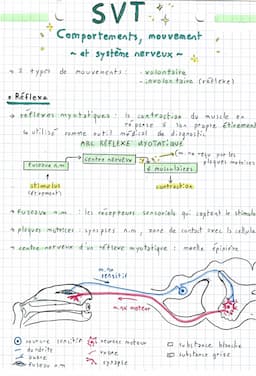 SVT
Comportements, mouvement
~ et système nerveux ~
→ 2 types de mouvements : - volontaire
- involontaire (réflexe)
Réflexe
→ réflexes myotatiques : la contraction du muscle en
réponse à son propre étirement
↳ utilisé comme outil médical de diagnostic
ARC RÉFLEXE MYOTATIQUE
fuseaux n.m → centre nerveux → ¢ musculaires
par les
plaques motrices
stimulus
(étirement)
contraction
→ fuseaux n.m. : les récepteurs sensoriels qui captent le stimulus
→ plaques motrices : synapses n.m, zone de contact avec la cellule
→ centre nerveux d'un réflexe myotatique : moelle épinière
sensitif
moteur
neurone sensitif
dendrite
axone
fuseau n.m
neurone moteur
axone
synapse
substance blanche
substance grise